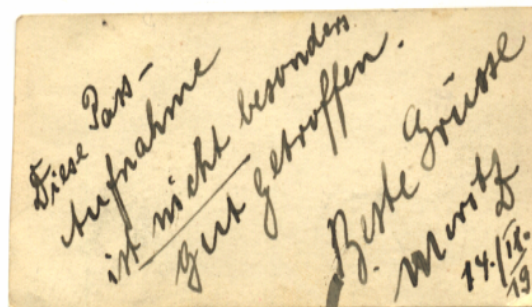 Diese Pass-
Aufnahme
ist nicht besonders
gut getroffen.
Beste Grüsse
Moritz
14./II.
19